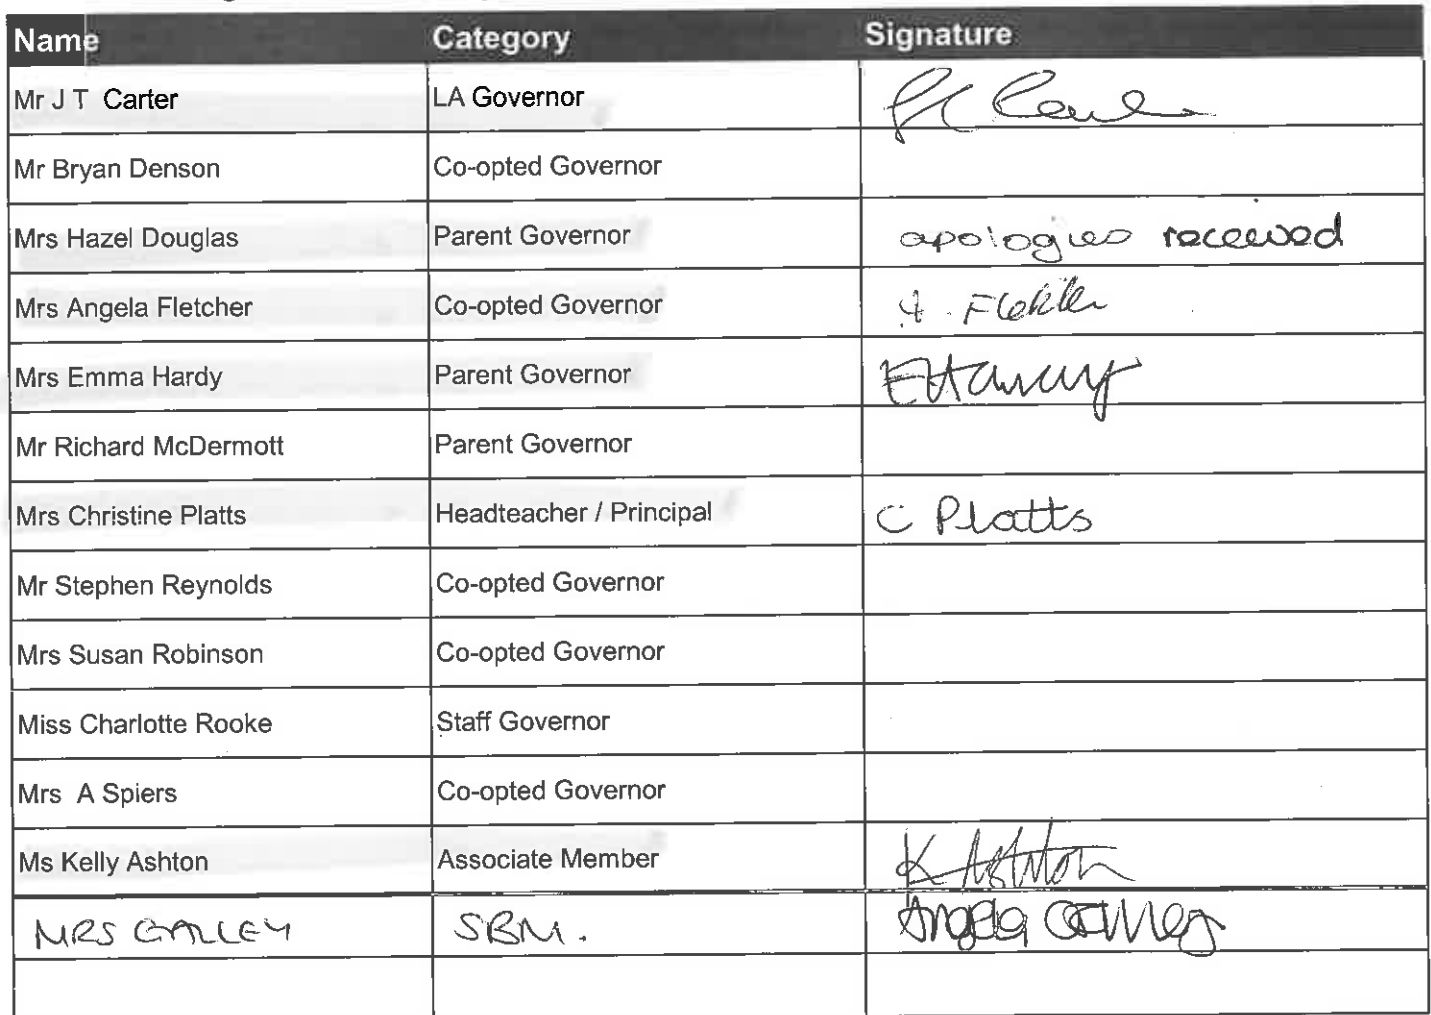 Name Category Signature
Mr J T Carter LA Governor
Mr Bryan Denson Co-opted Governor
Mrs Hazel Douglas Parent Governor apologies received
Mrs Angela Fletcher Co-opted Governor A. Fletcher
Mrs Emma Hardy Parent Governor EHardy
Mr Richard McDermott Parent Governor
Mrs Christine Platts Headteacher / Principal C Platts
Mr Stephen Reynolds Co-opted Governor
Mrs Susan Robinson Co-opted Governor
Miss Charlotte Rooke Staff Governor
Mrs A Spiers Co-opted Governor
Ms Kelly Ashton Associate Member K Ashton
MRS GALLEY SBM. Angela Galley